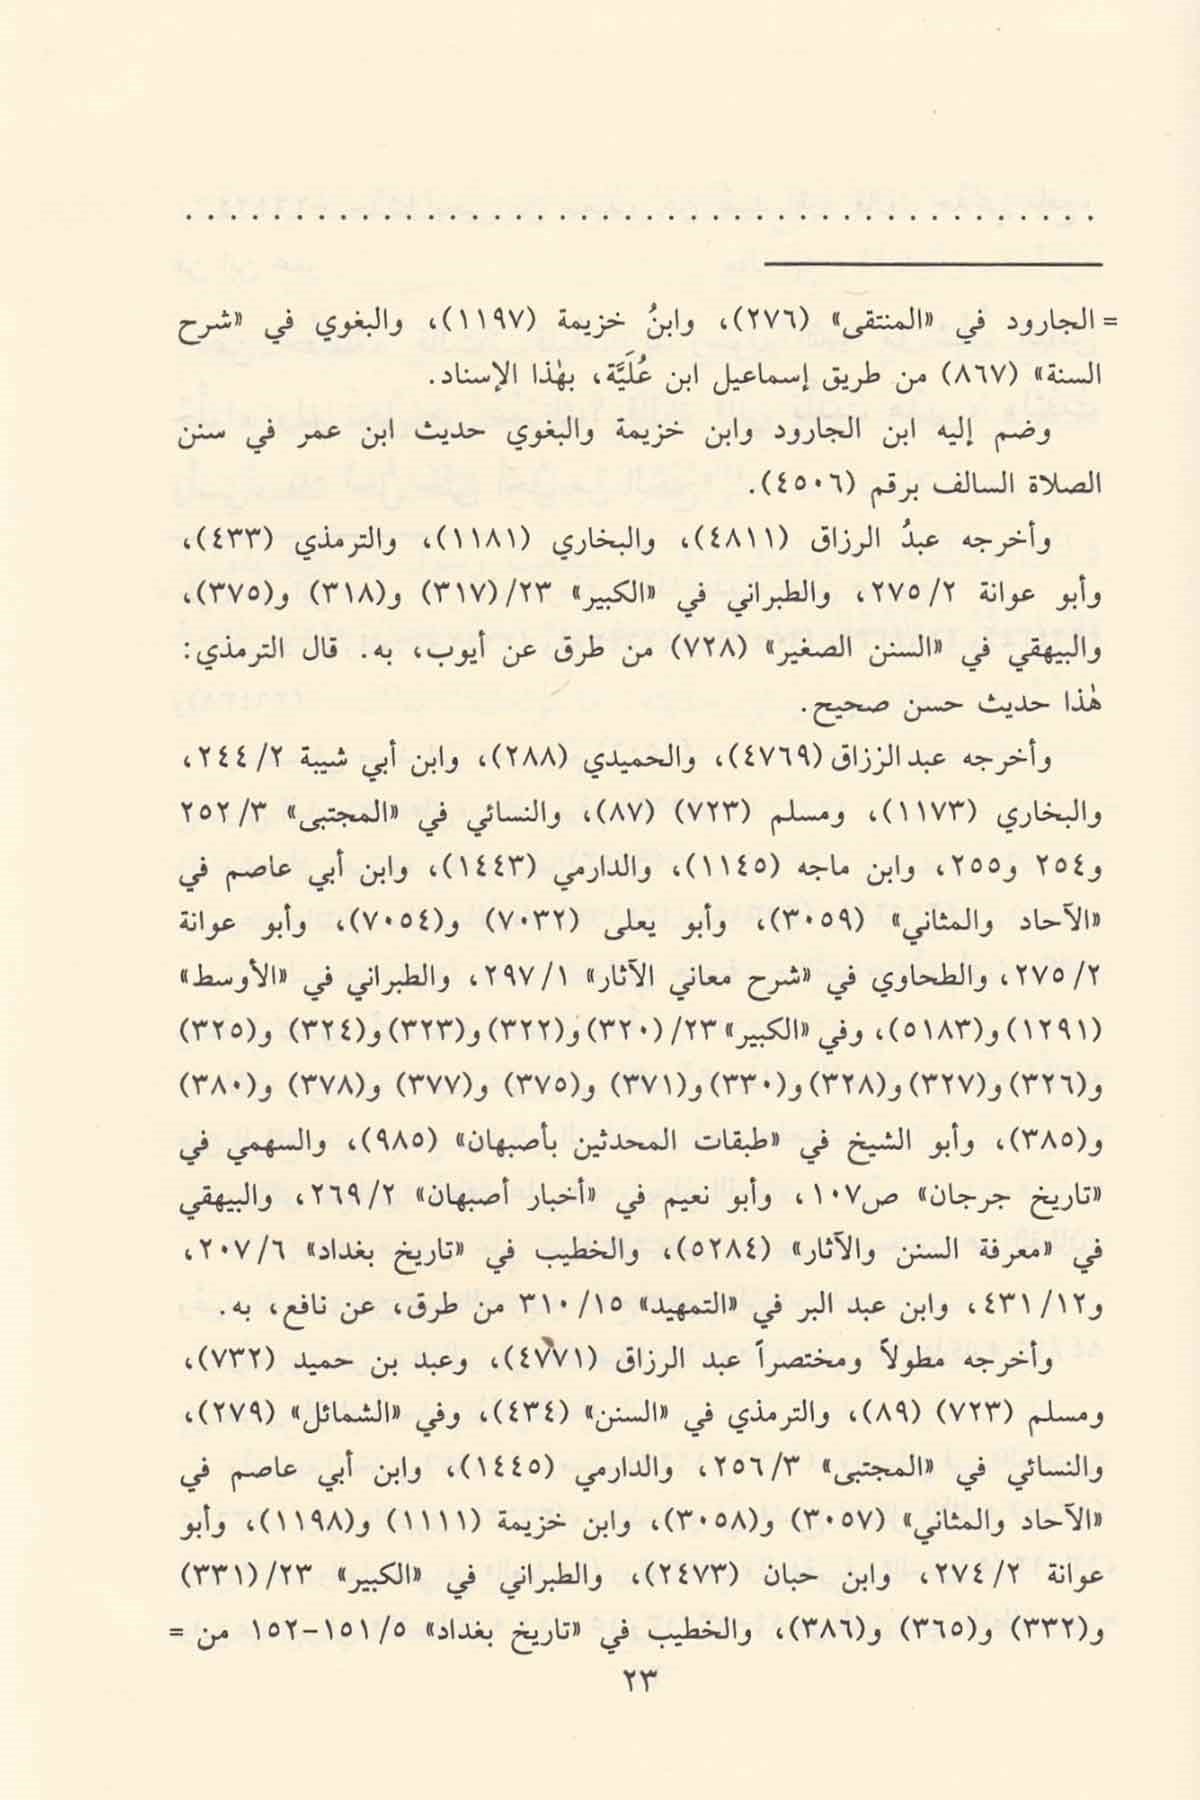 . . . . . . . . . . . . . . . . . . . . . . . . . . . . . . . . . . . . . . . . . .
= الجارود في «المنتقى» (٢٧٦)، وابنُ خزيمة (١١٩٧)، والبغوي في «شرح
السنة» (٨٦٧) من طريق إسماعيل ابن عُلَيَّة، بهٰذا الإسناد.
وضم إليه ابن الجارود وابن خزيمة والبغوي حديث ابن عمر في سنن
الصلاة السالف برقم (٤٥٠٦).
وأخرجه عبدُ الرزاق (٤٨١١)، والبخاري (١١٨١)، والترمذي (٤٣٣)،
وأبو عوانة ٢/ ٢٧٥، والطبراني في «الكبير» ٢٣/ (٣١٧) و(٣١٨) و(٣٧٥)،
والبيهقي في «السنن الصغير» (٧٢٨) من طرق عن أيوب، به. قال الترمذي:
هٰذا حديث حسن صحيح.
وأخرجه عبد الرزاق (٤٧٦٩)، والحميدي (٢٨٨)، وابن أبي شيبة ٢/ ٢٤٤،
والبخاري (١١٧٣)، ومسلم (٧٢٣) (٨٧)، والنسائي في «المجتبى» ٣/ ٢٥٢
و٢٥٤ و٢٥٥، وابن ماجه (١١٤٥)، والدارمي (١٤٤٣)، وابن أبي عاصم في
«الآحاد والمثاني» (٣٠٥٩)، وأبو يعلى (٧٠٣٢) و(٧٠٥٤)، وأبو عوانة
٢/ ٢٧٥، والطحاوي في «شرح معاني الآثار» ١/ ٢٩٧، والطبراني في «الأوسط»
(١٢٩١) و(٥١٨٣)، وفي «الكبير» ٢٣/ (٣٢٠) و(٣٢٢) و(٣٢٣) و(٣٢٤) و(٣٢٥)
و(٣٢٦) و(٣٢٧) و(٣٢٨) و(٣٣٠) و(٣٧١) و(٣٧٥) و(٣٧٧) و(٣٧٨) و(٣٨٠)
و(٣٨٥)، وأبو الشيخ في «طبقات المحدثين بأصبهان» (٩٨٥)، والسهمي في
«تاريخ جرجان» ص١٠٧، وأبو نعيم في «أخبار أصبهان» ٢/ ٢٦٩، والبيهقي
في «معرفة السنن والآثار» (٥٢٨٤)، والخطيب في «تاريخ بغداد» ٦/ ٢٠٧،
و١٢/ ٤٣١، وابن عبد البر في «التمهيد» ١٥/ ٣١٠ من طرق، عن نافع، به.
وأخرجه مطولاً ومختصراً عبد الرزاق (٤٧٧١)، وعبد بن حميد (٧٣٢)،
ومسلم (٧٢٣) (٨٩)، والترمذي في «السنن» (٤٣٤)، وفي «الشمائل» (٢٧٩)،
والنسائي في «المجتبى» ٣/ ٢٥٦، والدارمي (١٤٤٥)، وابن أبي عاصم في
«الآحاد والمثاني» (٣٠٥٧) و(٣٠٥٨)، وابن خزيمة (١١١١) و(١١٩٨)، وأبو
عوانة ٢/ ٢٧٤، وابن حبان (٢٤٧٣)، والطبراني في «الكبير» ٢٣/ (٣٣١)
و(٣٣٢) و(٣٦٥) و(٣٨٦)، والخطيب في «تاريخ بغداد» ٥/ ١٥١-١٥٢ من =
٢٣